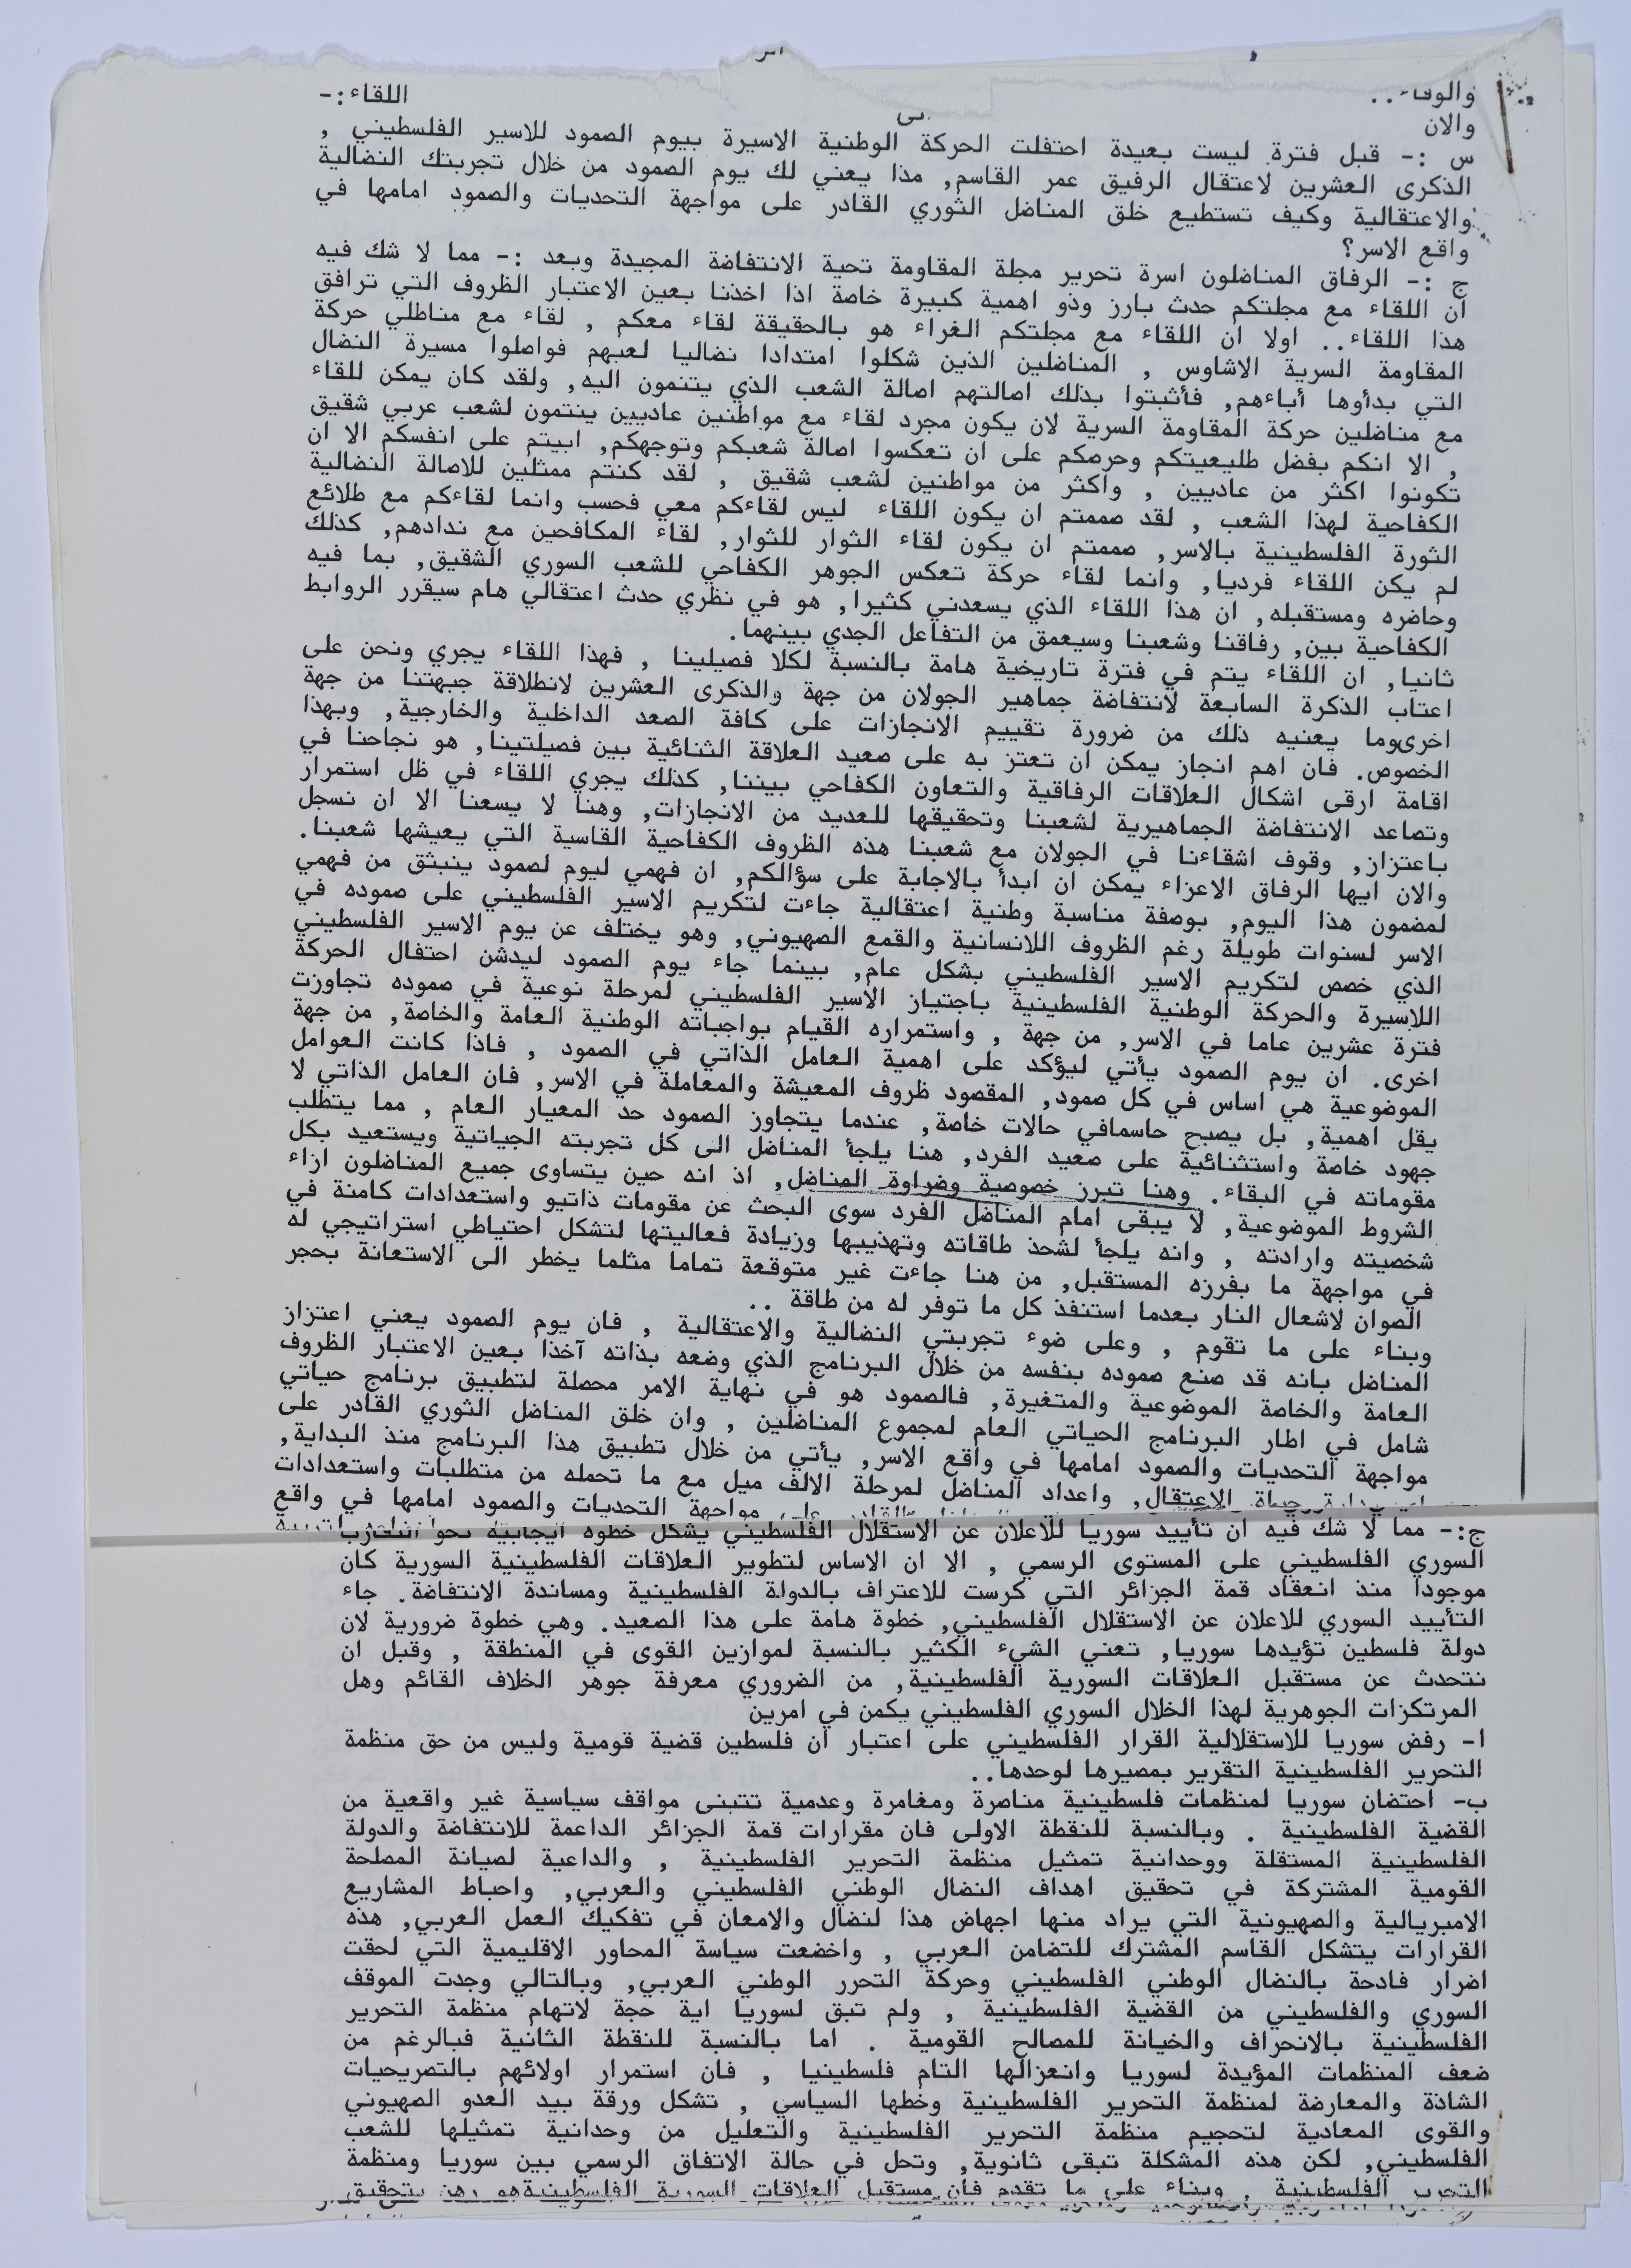 والوفاء.. اللقاء:-
والان
س :- قبل فترة ليست بعيدة احتفلت الحركة الوطنية الاسيرة بيوم الصمود للاسير الفلسطيني ,
الذكرى العشرين لاعتقال الرفيق عمر القاسم, مذا يعني لك يوم الصمود من خلال تجربتك النضالية
والاعتقالية وكيف تستطيع خلق المناضل الثوري القادر على مواجهة التحديات والصمود امامها في
واقع الاسر؟
ج :- الرفاق المناضلون اسرة تحرير مجلة المقاومة تحية الانتفاضة المجيدة وبعد :- مما لا شك فيه
ان اللقاء مع مجلتكم حدث بارز وذو اهمية كبيرة خاصة اذا اخذنا بعين الاعتبار الظروف التي ترافق
هذا اللقاء.. اولا ان اللقاء مع مجلتكم الغراء هو بالحقيقة لقاء معكم , لقاء مع مناطلي حركة
المقاومة السرية الاشاوس , المناضلين الذين شكلوا امتدادا نضاليا لعبهم فواصلوا مسيرة النضال
التي بدأوها أباءهم, فأثبتوا بذلك اصالتهم اصالة الشعب الذي يتنمون اليه, ولقد كان يمكن للقاء
مع مناضلين حركة المقاومة السرية لان يكون مجرد لقاء مع مواطنين عاديين ينتمون لشعب عربي شقيق
, الا انكم بفضل طليعيتكم وحرصكم على ان تعكسوا اصالة شعبكم وتوجهكم, ابيتم على انفسكم الا ان
تكونوا اكثر من عاديين , واكثر من مواطنين لشعب شقيق , لقد كنتم ممثلين للاصالة النضالية
الكفاحية لهذا الشعب , لقد صممتم ان يكون اللقاء ليس لقاءكم معي فحسب وانما لقاءكم مع طلائع
الثورة الفلسطينية بالاسر, صممتم ان يكون لقاء الثوار للثوار, لقاء المكافحين مع ندادهم, كذلك
لم يكن اللقاء فرديا, وانما لقاء حركة تعكس الجوهر الكفاحي للشعب السوري الشقيق, بما فيه
وحاضره ومستقبله, ان هذا اللقاء الذي يسعدني كثيرا, هو في نظري حدث اعتقالي هام سيقرر الروابط
الكفاحية بين, رفاقنا وشعبنا وسيعمق من التفاعل الجدي بينهما.
ثانيا, ان اللقاء يتم في فترة تاريخية هامة بالنسبة لكلا فصيلينا , فهذا اللقاء يجري ونحن على
اعتاب الذكرة السابعة لانتفاضة جماهير الجولان من جهة والذكرى العشرين لانطلاقة جبهتنا من جهة
اخرىوما يعنيه ذلك من ضرورة تقييم الانجازات على كافة الصعد الداخلية والخارجية, وبهذا
الخصوص. فان اهم انجاز يمكن ان تعتز به على صعيد العلاقة الثنائية بين فصيلتينا, هو نجاحنا في
اقامة ارقى اشكال العلاقات الرفاقية والتعاون الكفاحي بيننا, كذلك يجري اللقاء في ظل استمرار
وتصاعد الانتفاضة الجماهيرية لشعبنا وتحقيقها للعديد من الانجازات, وهنا لا يسعنا الا ان نسجل
باعتزاز, وقوف اشقاءنا في الجولان مع شعبنا هذه الظروف الكفاحية القاسية التي يعيشها شعبنا.
والان ايها الرفاق الاعزاء يمكن ان ابدأ بالاجابة على سؤالكم, ان فهمي ليوم لصمود ينبثق من فهمي
لمضمون هذا اليوم, بوصفة مناسبة وطنية اعتقالية جاءت لتكريم الاسير الفلسطيني على صموده في
الاسر لسنوات طويلة رغم الظروف اللانسانية والقمع الصهيوني, وهو يختلف عن يوم الاسير الفلسطيني
الذي خصص لتكريم الاسير الفلسطيني بشكل عام, بينما جاء يوم الصمود ليدشن احتفال الحركة
اللاسيرة والحركة الوطنية الفلسطينية باجتياز الأسير الفلسطيني لمرحلة نوعية في صموده تجاوزت
فترة عشرين عاما في الاسر, من جهة , واستمراره القيام بواجباته الوطنية العامة والخاصة, من جهة
اخرى. ان يوم الصمود يأتي ليؤكد على اهمية العامل الذاتي في الصمود , فاذا كانت العوامل
الموضوعية هي اساس في كل صمود, المقصود ظروف المعيشة والمعاملة في الاسر, فان العامل الذاتي لا
يقل اهمية, بل يصبح حاسمافي حالات خاصة, عندما يتجاوز الصمود حد المعيار العام , مما يتطلب
جهود خاصة واستثنائية على صعيد الفرد, هنا يلجأ المناضل الى كل تجربته الجياتية ويستعيد بكل
مقوماته في البقاء. وهنا تبرز خصوصية وضراوة المناضل, اذ انه حين يتساوى جميع المناضلون ازاء
الشروط الموضوعية, لا يبقى امام المناضل الفرد سوى البحث عن مقومات ذاتيو واستعدادات كامنة في
شخصيته وارادته , وانه يلجأ لشحذ طاقاته وتهذيبها وزيادة فعاليتها لتشكل احتياطي استراتيجي له
في مواجهة ما بفرزه المستقبل, من هنا جاءت غير متوقعة تماما مثلما يخطر الى الاستعانة بحجر
الصوان لاشعال النار بعدما استنفذ كل ما توفر له من طاقة ..
وبناء على ما تقوم , وعلى ضوء تجربتي النضالية والاعتقالية , فان يوم الصمود يعني اعتزاز
المناضل بانه قد صنع صموده بنفسه من خلال البرنامج الذي وضعه بذاته آخذا بعين الاعتبار الظروف
العامة والخاصة الموضوعية والمتغيرة, فالصمود هو في نهاية الامر محصلة لتطبيق برنامج حياتي
شامل في اطار البرنامج الحياتي العام لمجموع المناضلين , وان خلق المناضل الثوري القادر على
مواجهة التحديات والصمود امامها في واقع الاسر, يأتي من خلال تطبيق هذا البرنامج منذ البداية,
حياة الاعتقال, واعداد المناضل لمرحلة الالف ميل مع ما تحمله من متطلبات واستعدادات
على مواجهة التحديات والصمود امامها في واقع
ج:- مما لا شك فيه ان تأييد سوريا للاعلان عن الاستقلال الفلسطيني يشكل خطوه ايجابيه نحو التقارب
السوري الفلسطيني على المستوى الرسمي , الا ان الاساس لتطوير العلاقات الفلسطينية السورية كان
موجودا منذ انعقاد قمة الجزائر التي كرست للاعتراف بالدولة الفلسطينية ومساندة الانتفاضة. جاء
التأييد السوري للاعلان عن الاستقلال الفلسطيني, خطوة هامة على هذا الصعيد. وهي خطوة ضرورية لان
دولة فلسطين تؤيدها سوريا, تعني الشيء الكثير بالنسبة لموازين القوى في المنطقة , وقبل ان
نتحدث عن مستقبل العلاقات السورية الفلسطينية, من الضروري معرفة جوهر الخلاف القائم وهل
المرتكزات الجوهرية لهذا الخلال السوري الفلسطيني يكمن في امرين
ا- رفض سوريا للاستقلالية القرار الفلسطيني على اعتبار ان فلسطين قضية قومية وليس من حق منظمة
التحرير الفلسطينية التقرير بمصيرها لوحدها..
ب- احتضان سوريا لمنظمات فلسطينية مناصرة ومغامرة وعدمية تتبنى مواقف سياسية غير واقعية من
القضية الفلسطينية . وبالنسبة للنقطة الاولى فان مقرارات قمة الجزائر الداعمة للانتفاضة والدولة
الفلسطينية المستقلة ووحدانية تمثيل منظمة التحرير الفلسطينية , والداعية لصيانة المصلحة
القومية المشتركة في تحقيق اهداف النضال الوطني الفلسطيني والعربي, واحباط المشاريع
الامبريالية والصهيونية التي يراد منها اجهاض هذا لنضال والامعان في تفكيك العمل العربي, هذه
القرارات يتشكل القاسم المشترك للتضامن العربي , واخضعت سياسة المحاور الاقليمية التي لحقت
اضرار فادحة بالنضال الوطني الفلسطيني وحركة التحرر الوطني العربي, وبالتالي وجدت الموقف
السوري والفلسطيني من القضية الفلسطينية , ولم تبق لسوريا اية حجة لاتهام منظمة التحرير
الفلسطينية بالانحراف والخيانة للمصالح القومية . اما بالنسبة للنقطة الثانية فبالرغم من
ضعف المنظمات المؤيدة لسوريا وانعزالها التام فلسطينيا , فان استمرار اولائهم بالتصريحيات
الشاذة والمعارضة لمنظمة التحرير الفلسطينية وخطها السياسي , تشكل ورقة بيد العدو الصهيوني
والقوى المعادية لتحجيم منظمة التحرير الفلسطينية والتعليل من وحدانية تمثيلها للشعب
الفلسطيني, لكن هذه المشكلة تبقى ثانوية, وتحل في حالة الاتفاق الرسمي بين سوريا ومنظمة
التحرير الفلسطينية , وبناء على ما تقدم فان مستقبل العلاقات السورية الفلسطينيةهو رهن بتحقيق